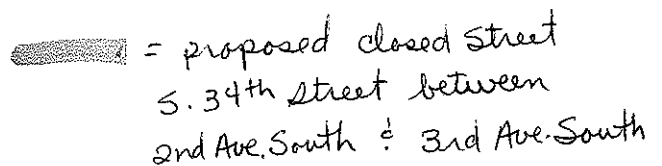 = proposed closed Street
S. 34th Street between
2nd Ave. South & 3rd Ave. South